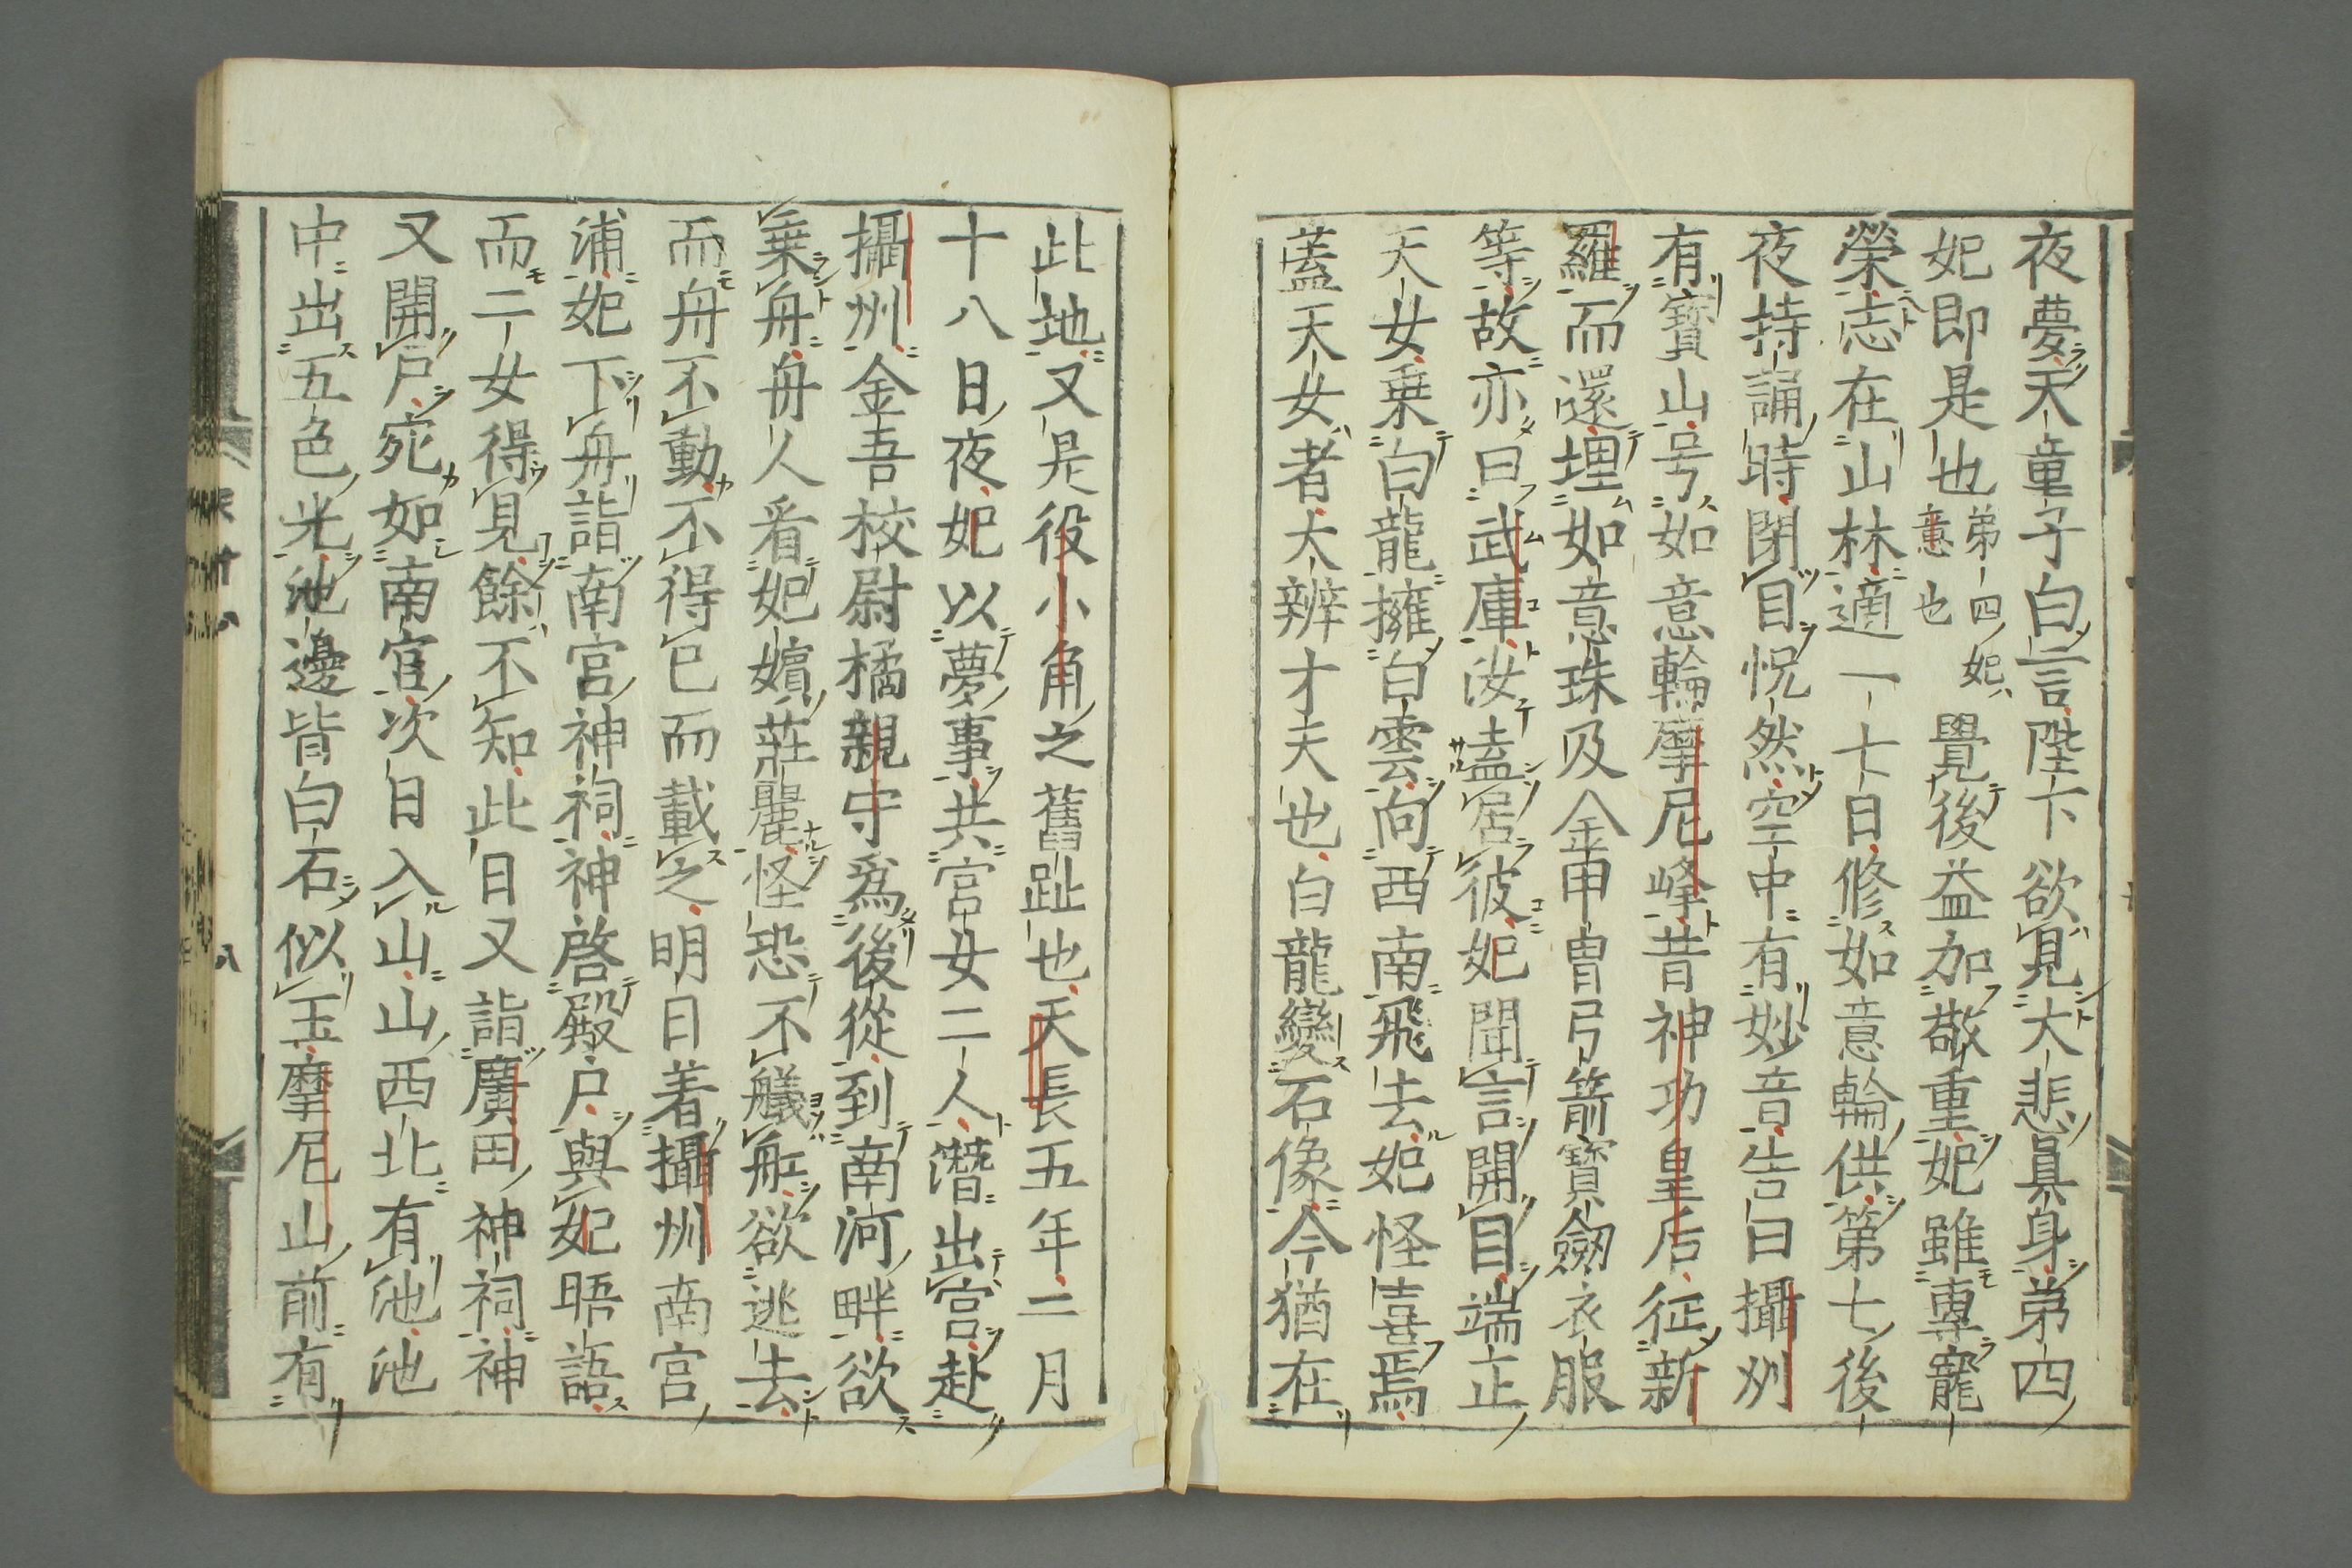 夜夢天童子白言陛下欲見大悲真身弟四
妃即是也弟四妃意也覺後益加敬重妃雖專寵
榮志在山林適一七日修如意輪供第七後
夜持誦時閉目怳然空中有妙音告曰攝州
有寶山号如意輪摩尼峰昔神功皇后征新
羅而還埋如意珠及金甲冑弓箭寶劔衣服
等故亦曰武庫汝盍居彼妃聞言開目端正
天女乗白龍擁白雲向西南飛去妃怪喜焉
蓋天女者大辨才天也白龍變石像今猶在
此地又是役小角之舊趾也天長五年二月
十八日夜妃以夢事共宮女二人潛出宮赴
攝州金吾校尉橘親守爲後從到南河畔欲
乗舟舟人看妃嬪莊麗怪恐不艤舩欲逃去
而舟不動不得已而載之明日着攝州南宮
浦妃下舟詣南宮神祠神啓殿戸與妃晤語
而二女得見餘不知此日又詣廣田神祠神
又開戸宛如南宮次日入山山西北有池池
中出五色光池邊皆白石似玉摩尼山前有